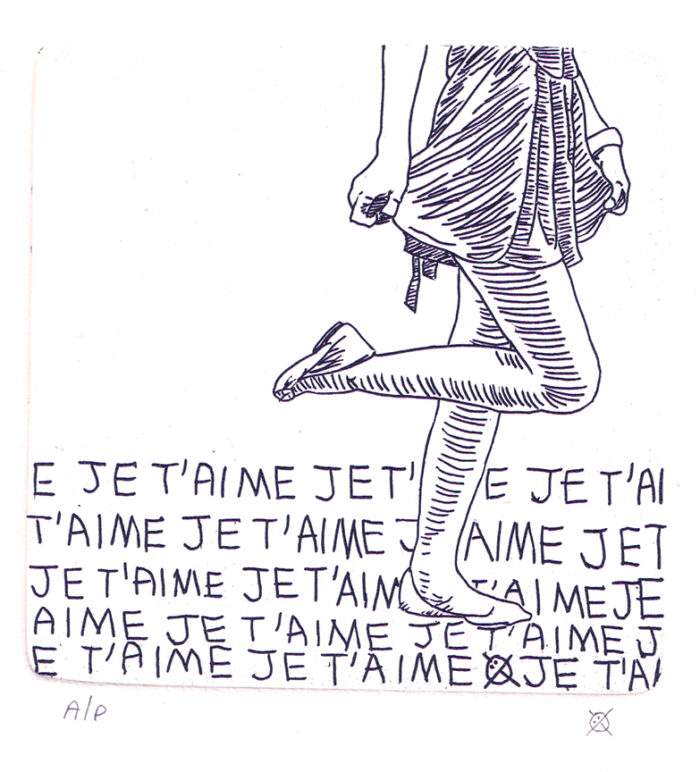 E JE T'AIME JE T' E JE T'AI
T'AIME JE T'AIME J AIME JE T
JE T'AIME JE T'AIM T'AIME JE
AIME JE T'AIME JE T'AIME J
E T'AIME JE T'AIME JE T'AI
A/P